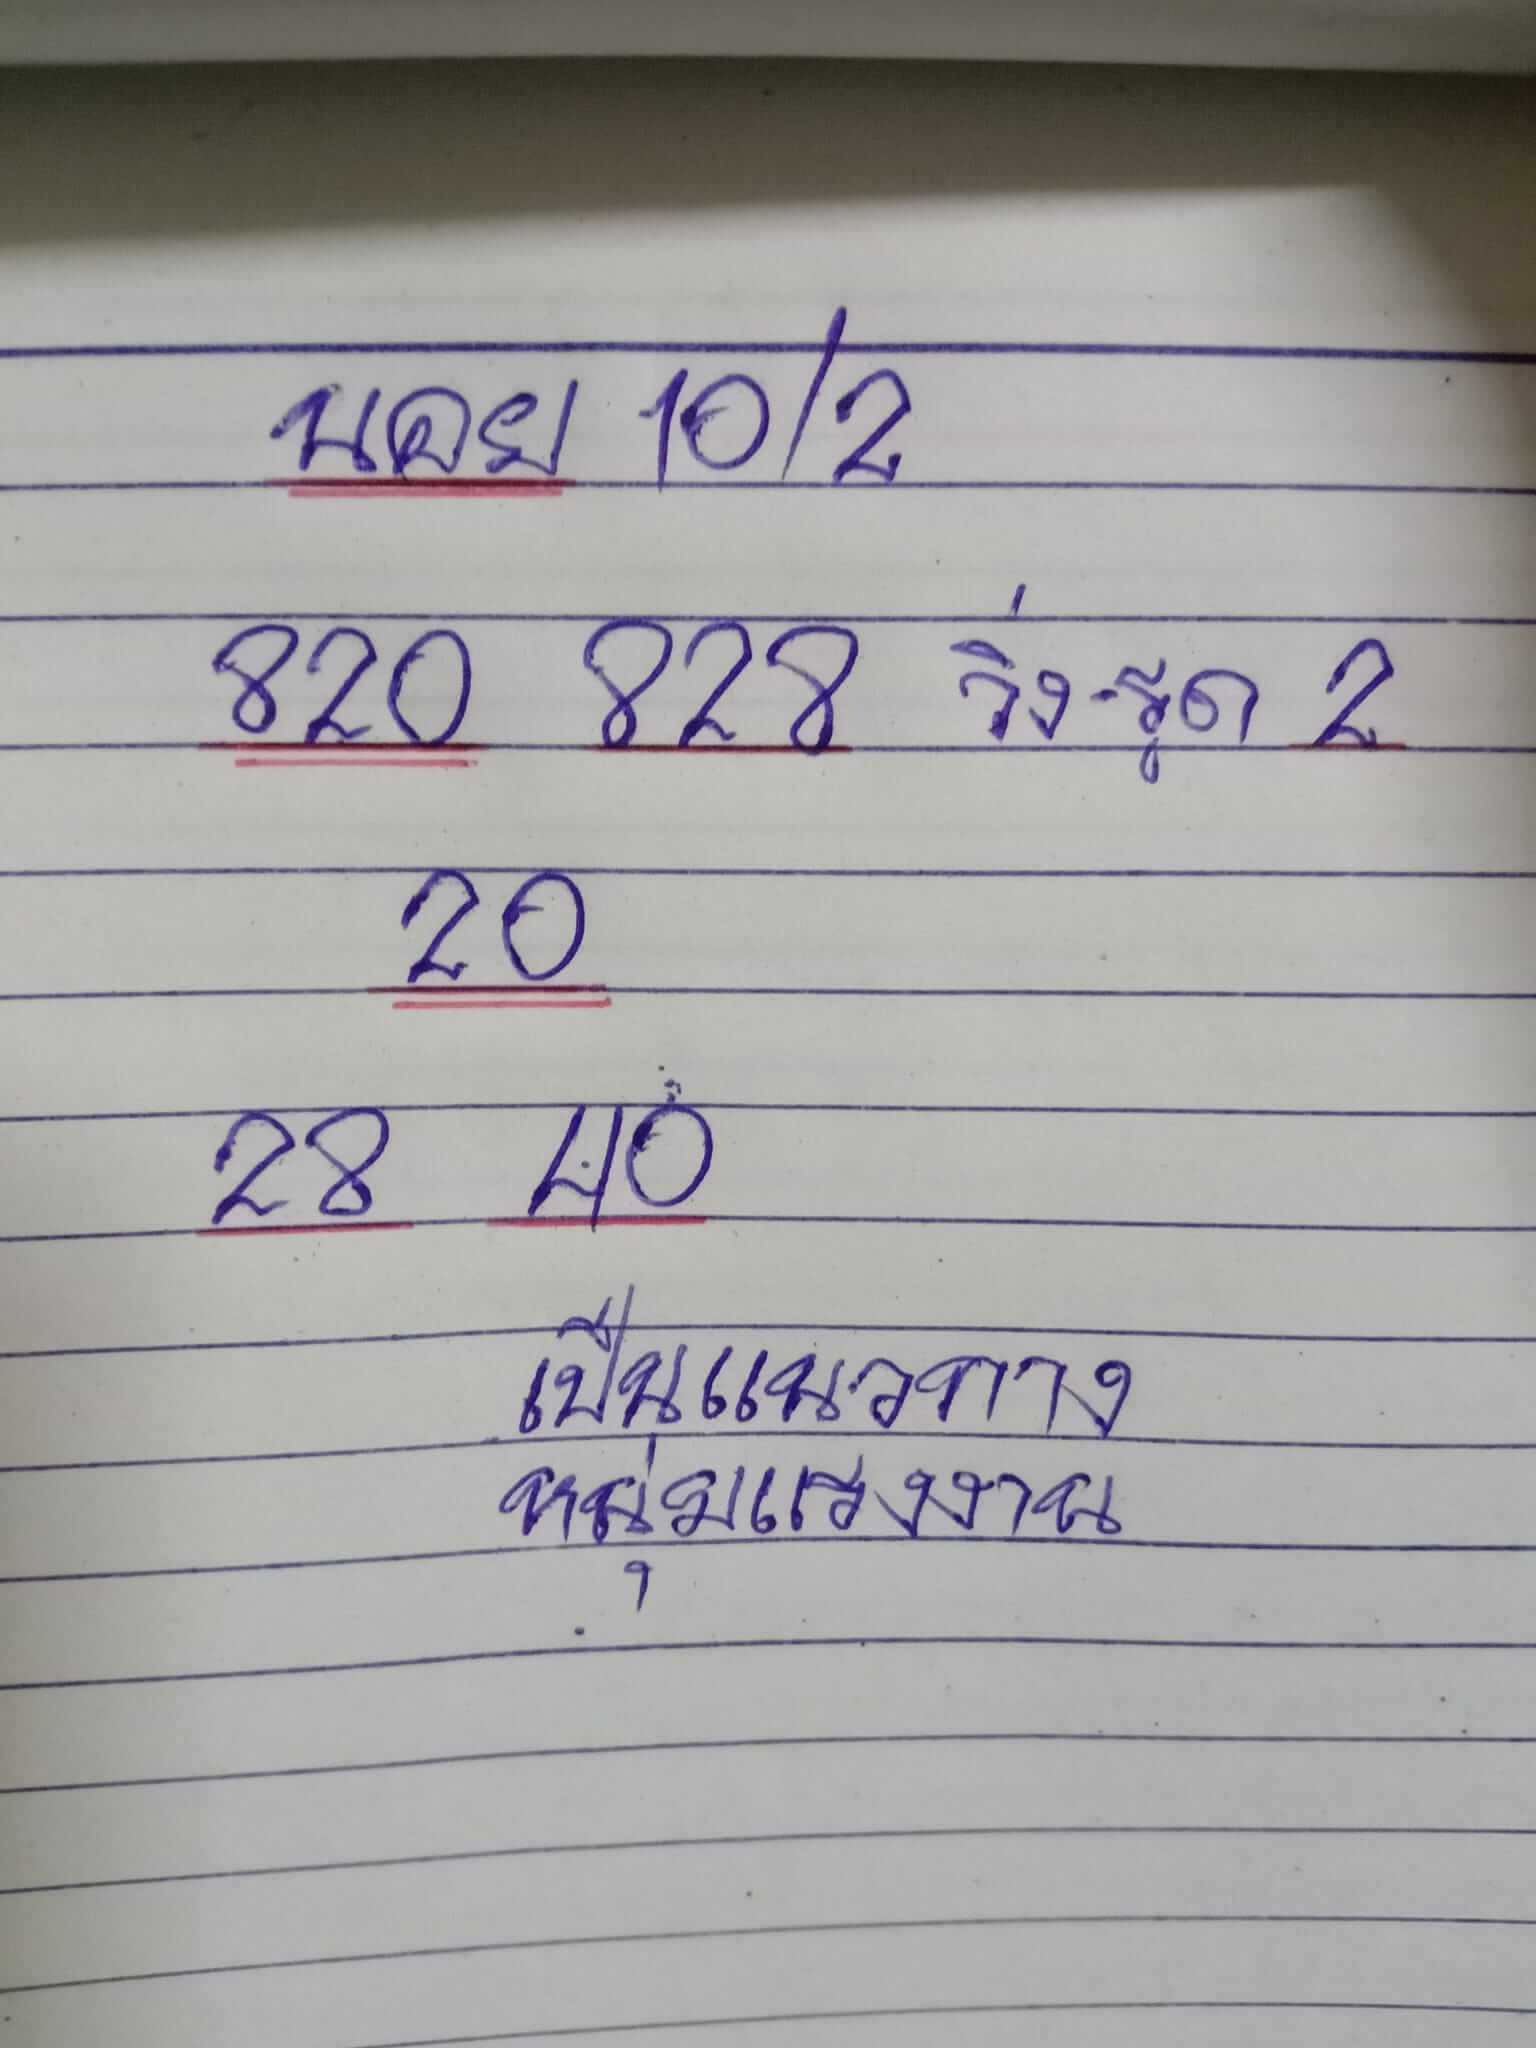 นอย 10/2
820 828 วิ่ง-รูด 2
20
28 40
เป็นแนวทาง
หนุ่มแรงงาน